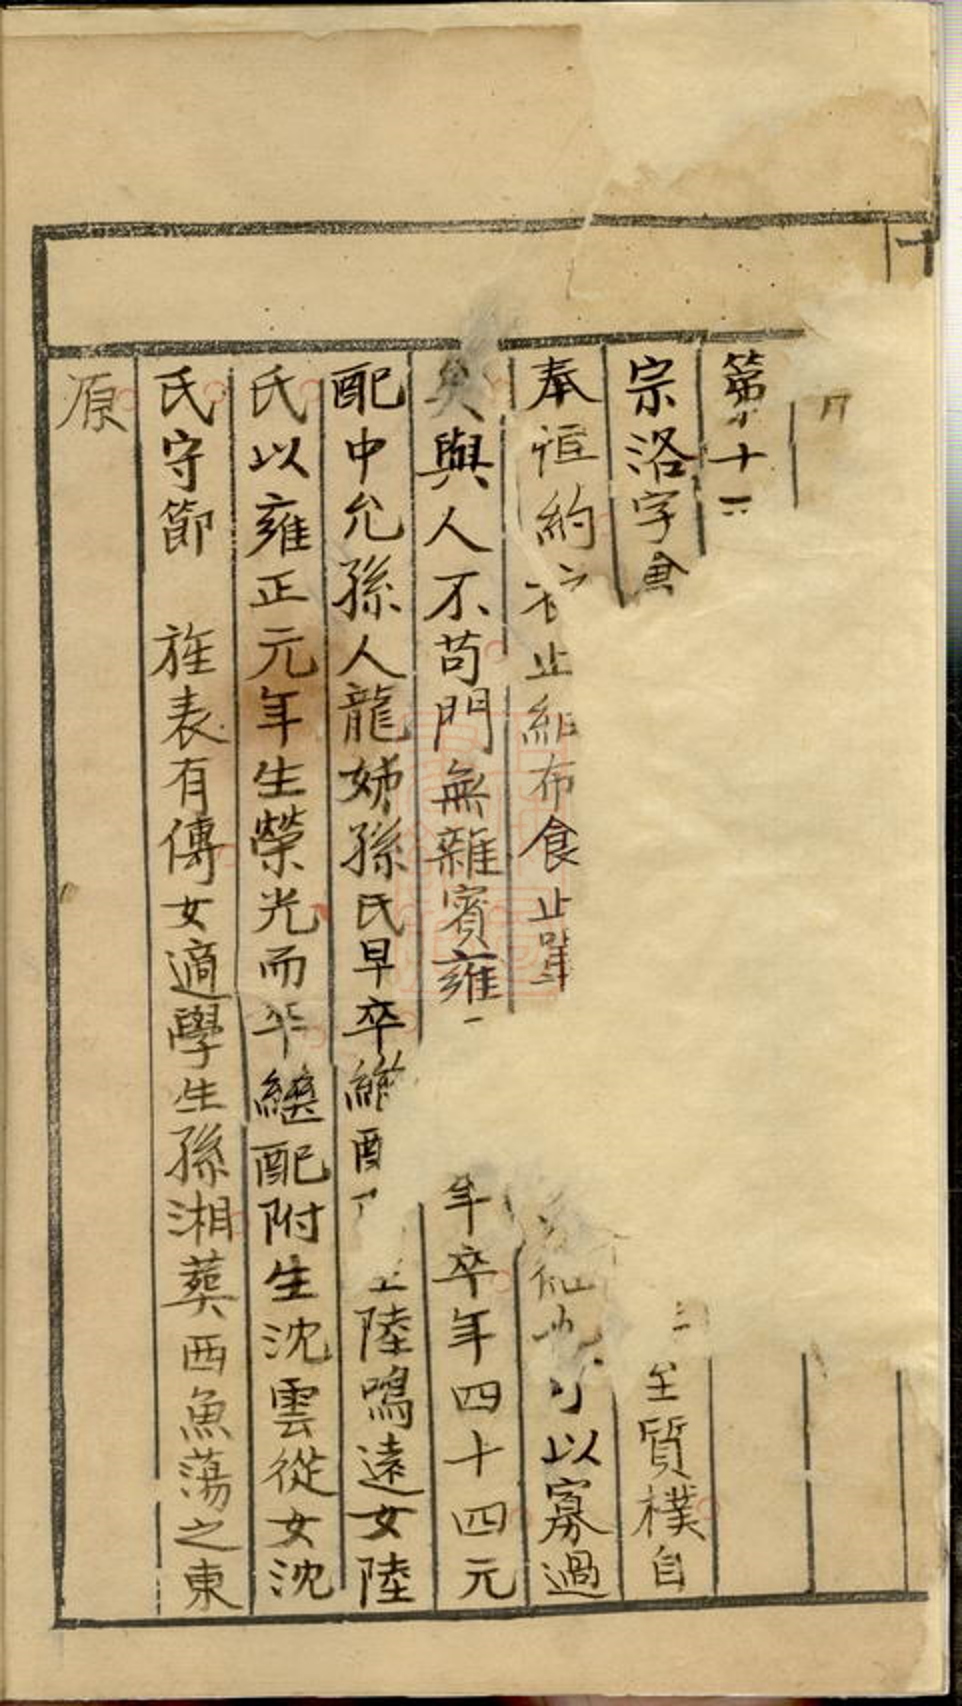 十
第十
宗洛字 質樸自
奉恒約衣止組布食止 可以寡過
矣與人不苟門無雜賓雍 年卒年四十四元
配中允孫人龍姊孫氏早卒繼配 陸鳴遠女陸
氏以雍正元年生榮光而卒繼配附生沈雲從女沈
氏守節 旌表有傳女適學生孫湘葬西魚蕩之東
原